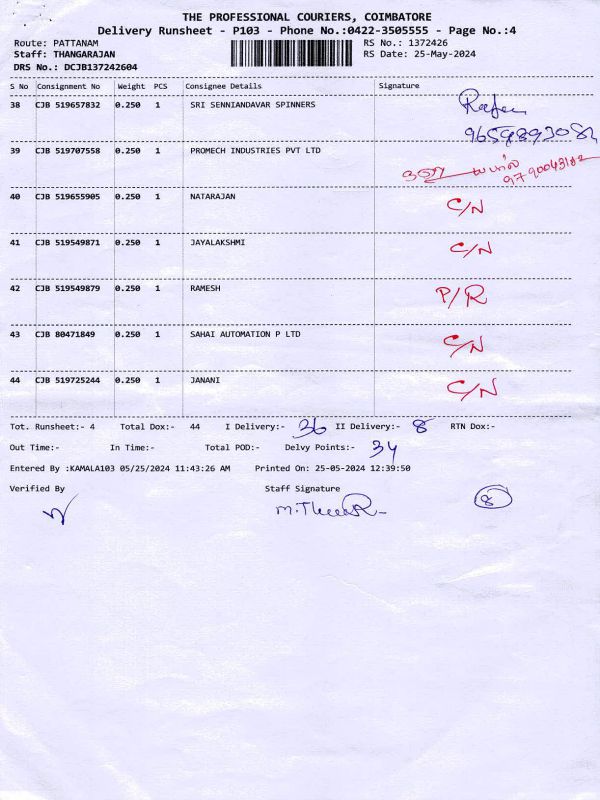 THE PROFESSIONAL COURIERS, COIMBATORE
Delivery Runsheet - P103 - Phone No.:0422-3505555 - Page No.:4
Route: PATTANAM RS No.: 1372426
Staff: THANGARAJAN RS Date: 25-May-2024
DRS No.: DCJB137242604
S No Consignment No Weight PCS Consignee Details Signature
38 CJB 519657832 0.250 1 SRI SENNIANDAVAR SPINNERS
39 CJB 519707558 0.250 1 PROMECH INDUSTRIES PVT LTD
9790043182
40 CJB 519655905 0.250 1 NATARAJAN C/N
41 CJB 519549871 0.250 1 JAYALAKSHMI C/N
42 CJB 519549879 0.250 1 RAMESH P/R
43 CJB 80471849 0.250 1 SAHAI AUTOMATION P LTD C/N
44 CJB 519725244 0.250 1 JANANI C/N
Tot. Runsheet:- 4 Total Dox:- 44 I Delivery:- 36 II Delivery:- 8 RTN Dox:-
Out Time:- In Time:- Total POD:- Delvy Points:- 34
Entered By :KAMALA103 05/25/2024 11:43:26 AM Printed On: 25-05-2024 12:39:50
Verified By Staff Signature 8